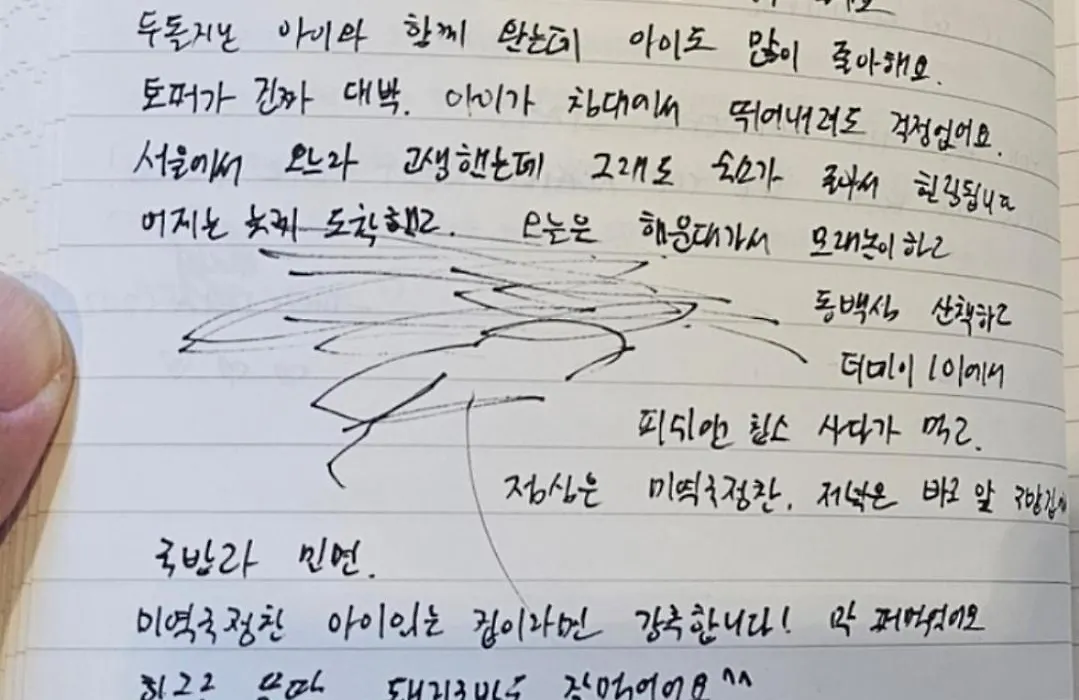 두돌지난 아이와 함께 왔는데 아이도 많이 좋아해요.
토퍼가 진짜 대박. 아이가 침대에서 뛰어내려도 걱정없어요.
서울에서 오느라 고생했는데 그래도 숙소가 좋아서 힐링됩니다
어제는 늦게 도착했고. 오늘은 해운대가서 모래놀이하고
동백섬 산책하고
더베이101에서
피쉬앤칩스 사다가 먹고.
점심은 미역국정찬. 저녁은 바로 앞 국밥집에
국밥과 밀면.
미역국정찬 아이있는 집이라면 강추합니다! 막 퍼먹었어요
돼지국밥도 잘먹었어요^^